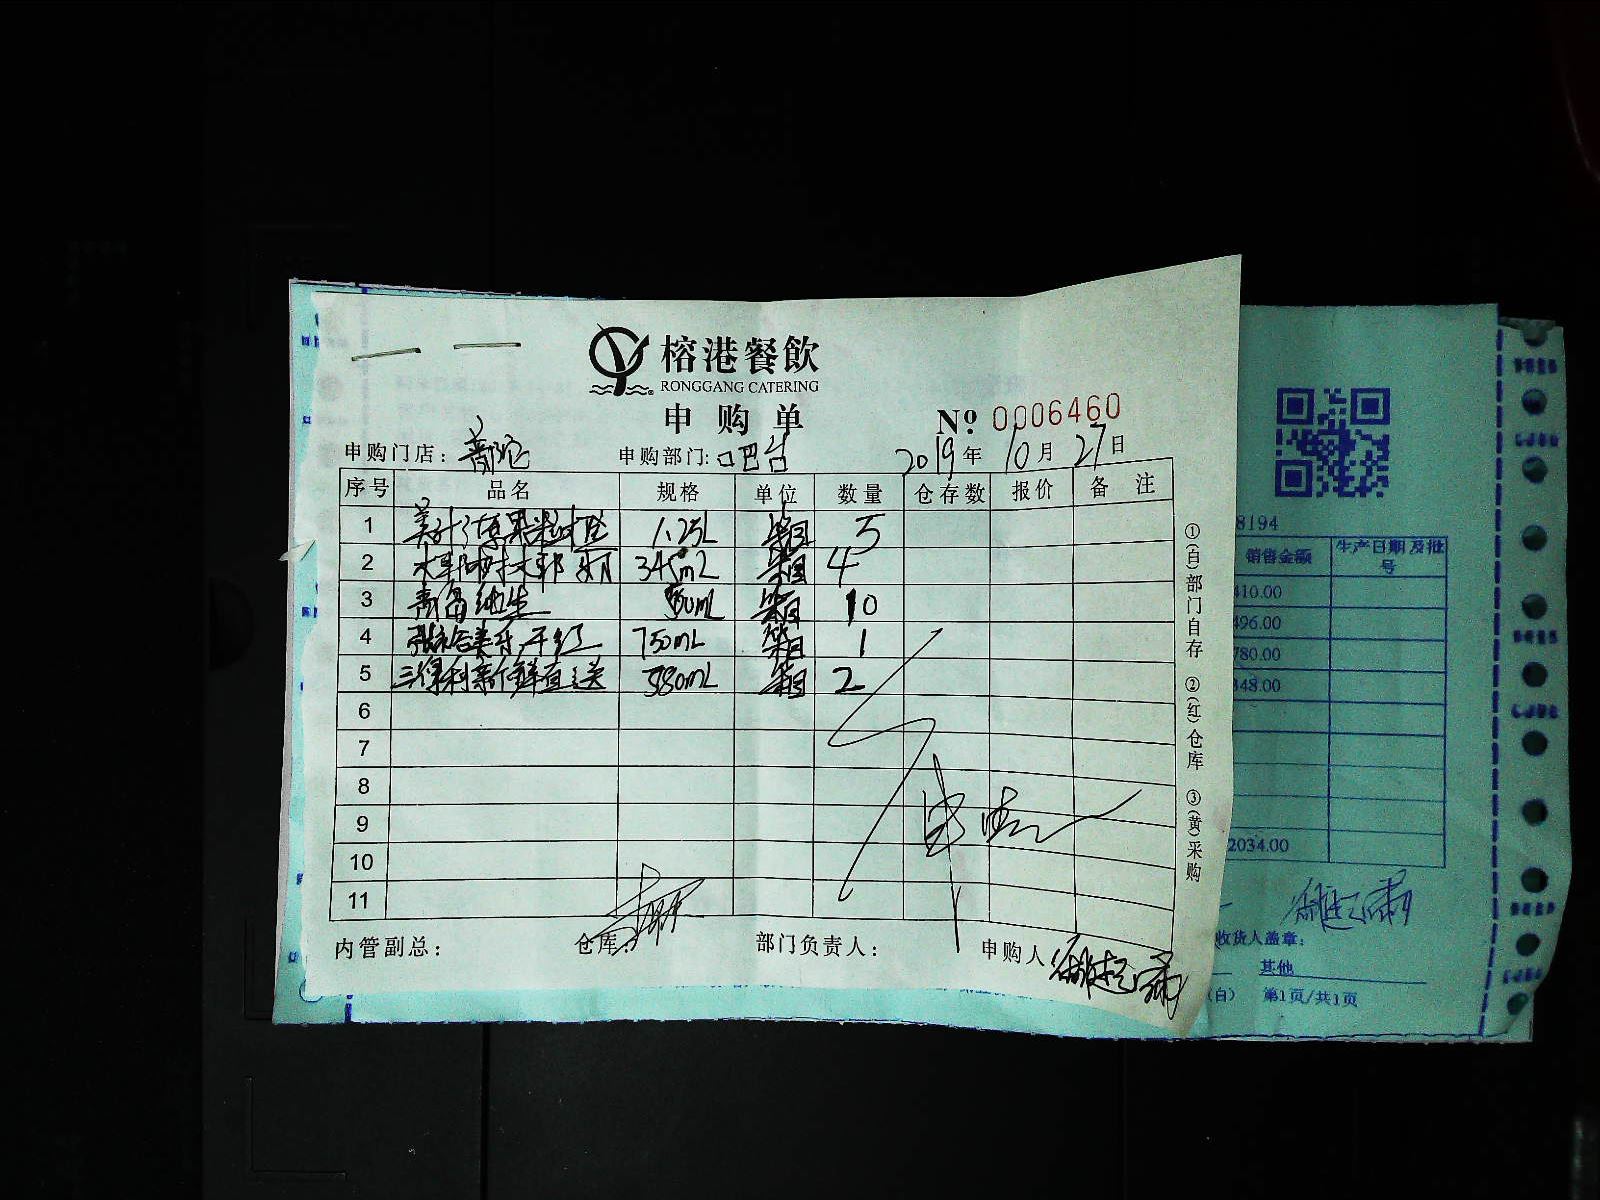 榕港餐飲
RONGGANG CATERING
申购单
№ 0006460
申购门店：普陀 申购部门：吧台 2019年10月27日
序号 品名 规格 单位 数量 仓存数 报价 备注
1 美汁源果粒橙 1.25L 箱 5
2 345mL 箱 4
3 青岛纯生 箱 10
4 干红 750mL 箱 1
5 三得利新鲜直送 580mL 箱 2
6
7
8
9
10
11
内管副总： 仓库： 部门负责人： 申购人
①(白)部门自存 ②(红)仓库 ③(黄)采购
8194
销售金额 生产日期及批号
410.00
496.00
780.00
348.00
2034.00
收货人盖章：
其他
(白) 第1页/共1页